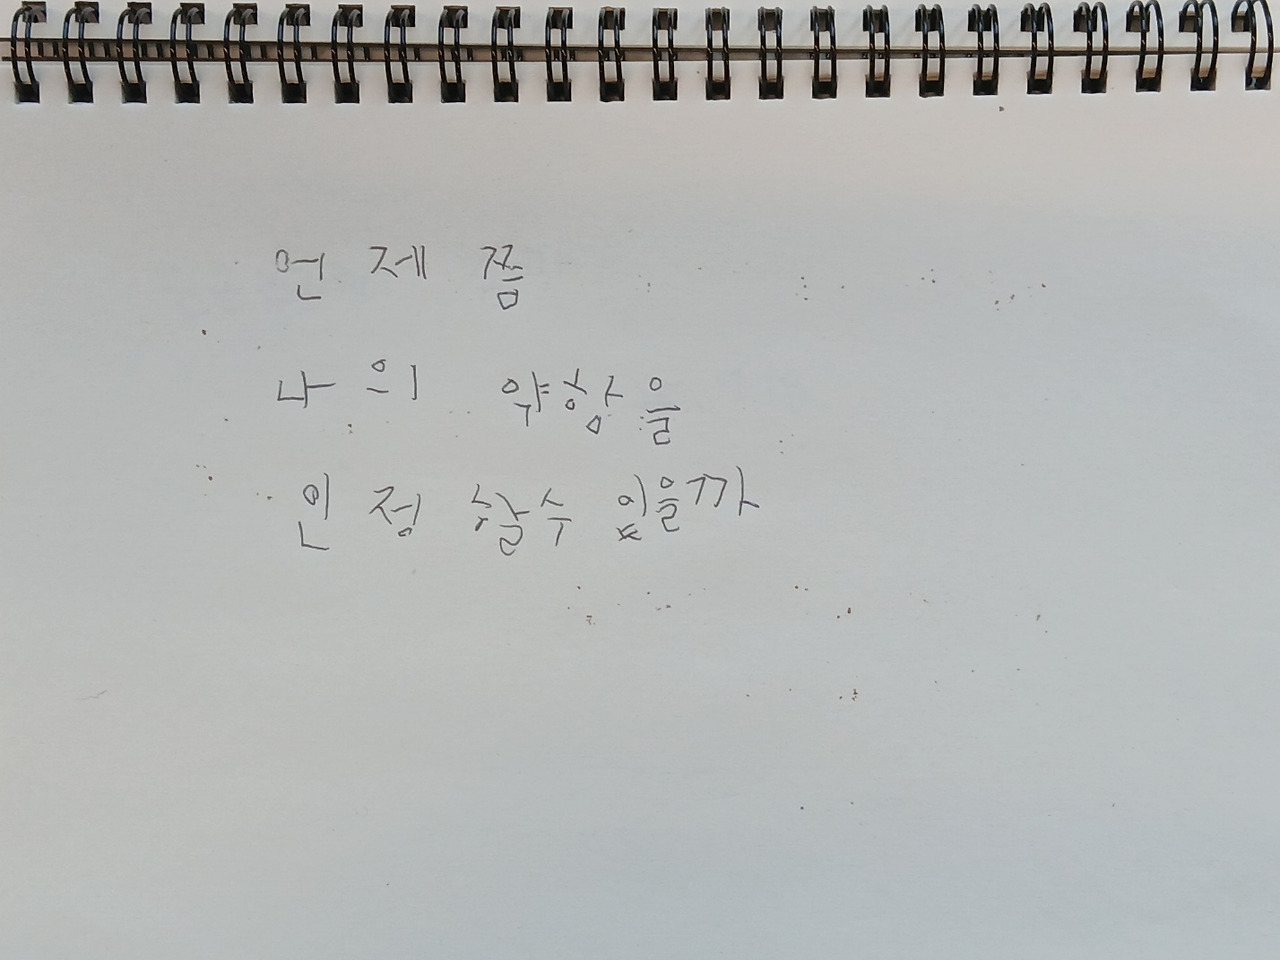 언제쯤
나의 약함을
인정할수 있을까